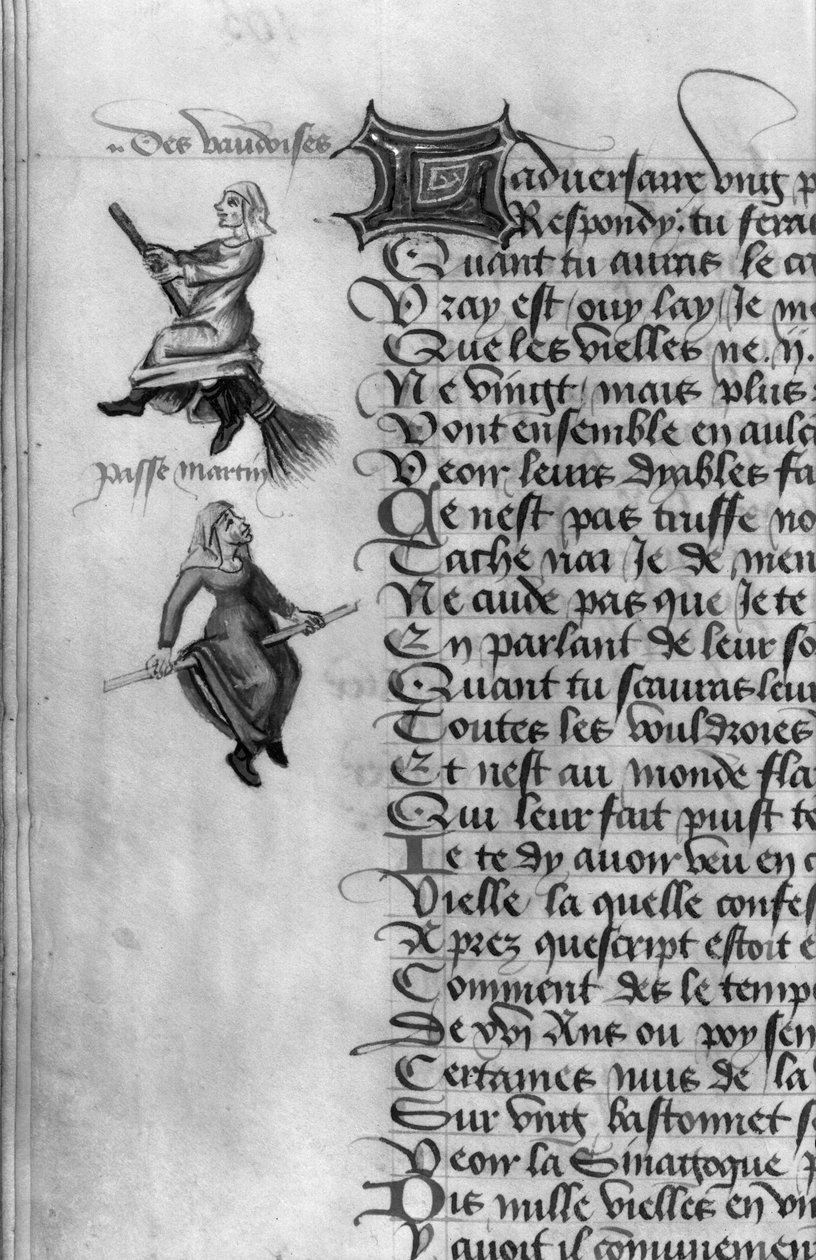 Des vaudoises
passe martin
L'adversaire vng
Respondy: tu feras
Quant tu auras le
Vray est / ouy lay / Je
Que les vielles ne .ij.
Ne vingt / mais plus
Vont ensemble en
Veoir leurs dyables
Ce nest pas truffe
Tache nay Je de
Ne cuide pas que Je te
En parlant de leur
Quant tu scauras leur
Toutes les vouldroies
Et nest au monde
Qui leur fait puist
Ie te dy avoir veu en
Vielle la quelle
Aprez quescript estoit
Comment des le temps
De xvi Ans ou poy
Certaines nuis de la
Sur vng bastonnet
Veoir la Sinagogue
Dis mille vielles en
Y avoit il